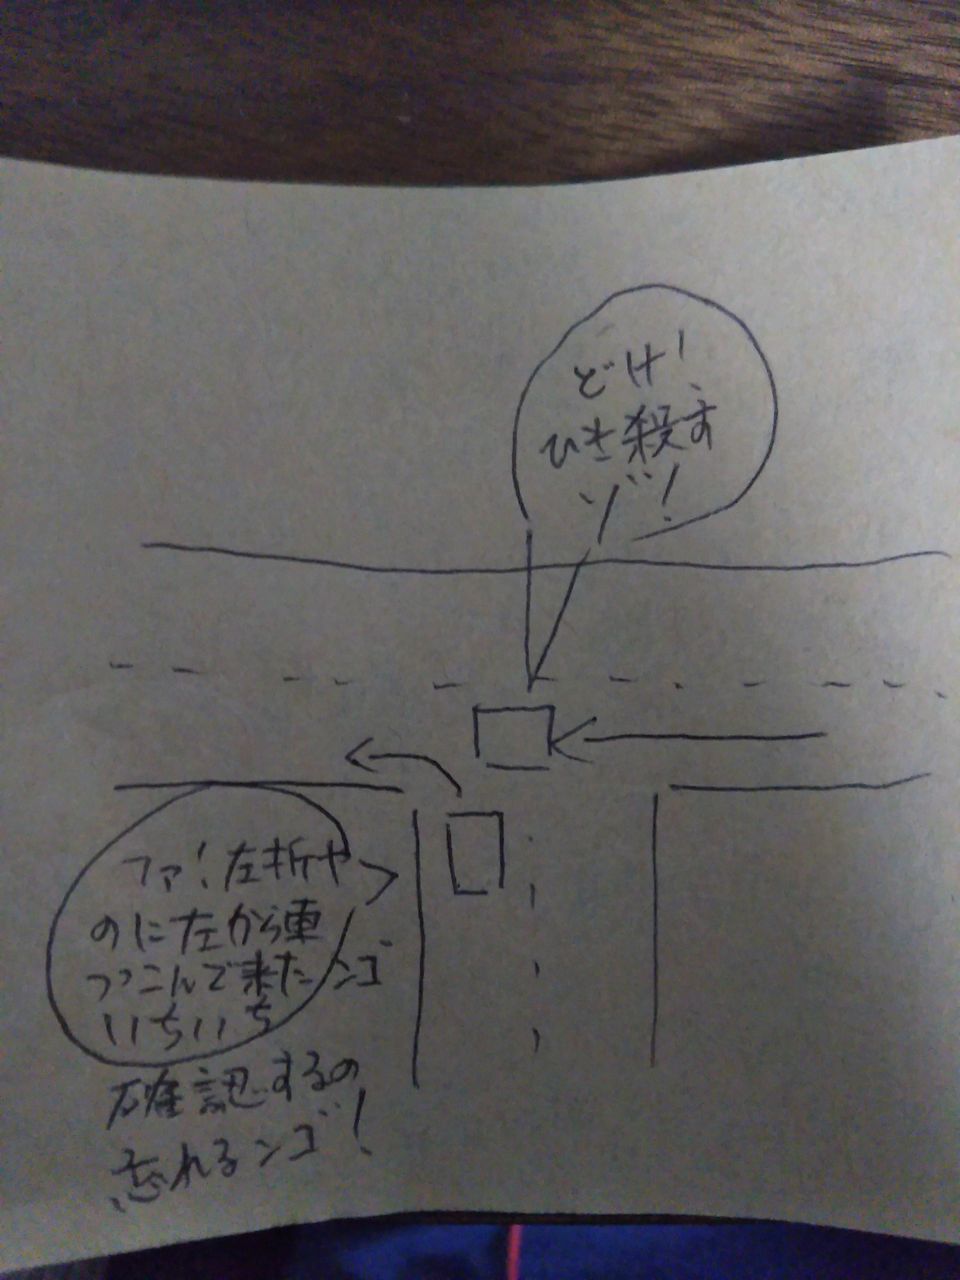 どけ!
ひき殺す
ゾ!
ファ!左折や
のに左から車
つっこんで来たンゴ
いちいち
確認するの
忘れるンゴ!